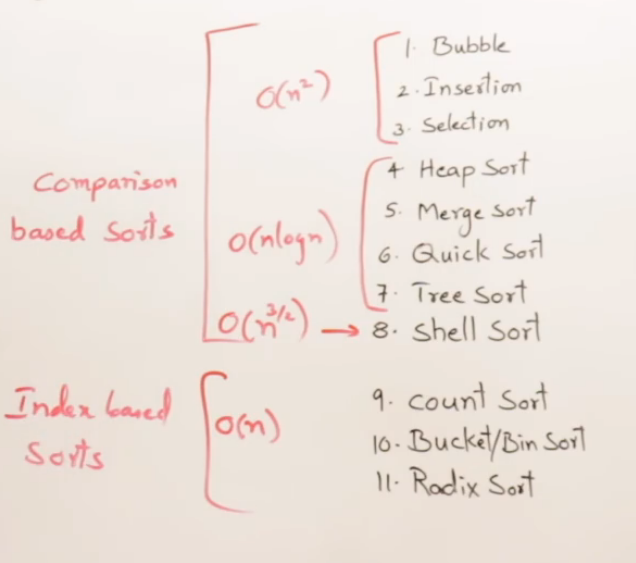 1. Bubble
O(n²)
2. Insertion
3. Selection
Comparison
based Sorts
4 Heap Sort
5. Merge Sort
O(nlogn)
6. Quick Sort
7. Tree Sort
O(n^3/2) → 8. Shell Sort
Index based
Sorts
O(n)
9. Count Sort
10. Bucket/Bin Sort
11. Radix Sort